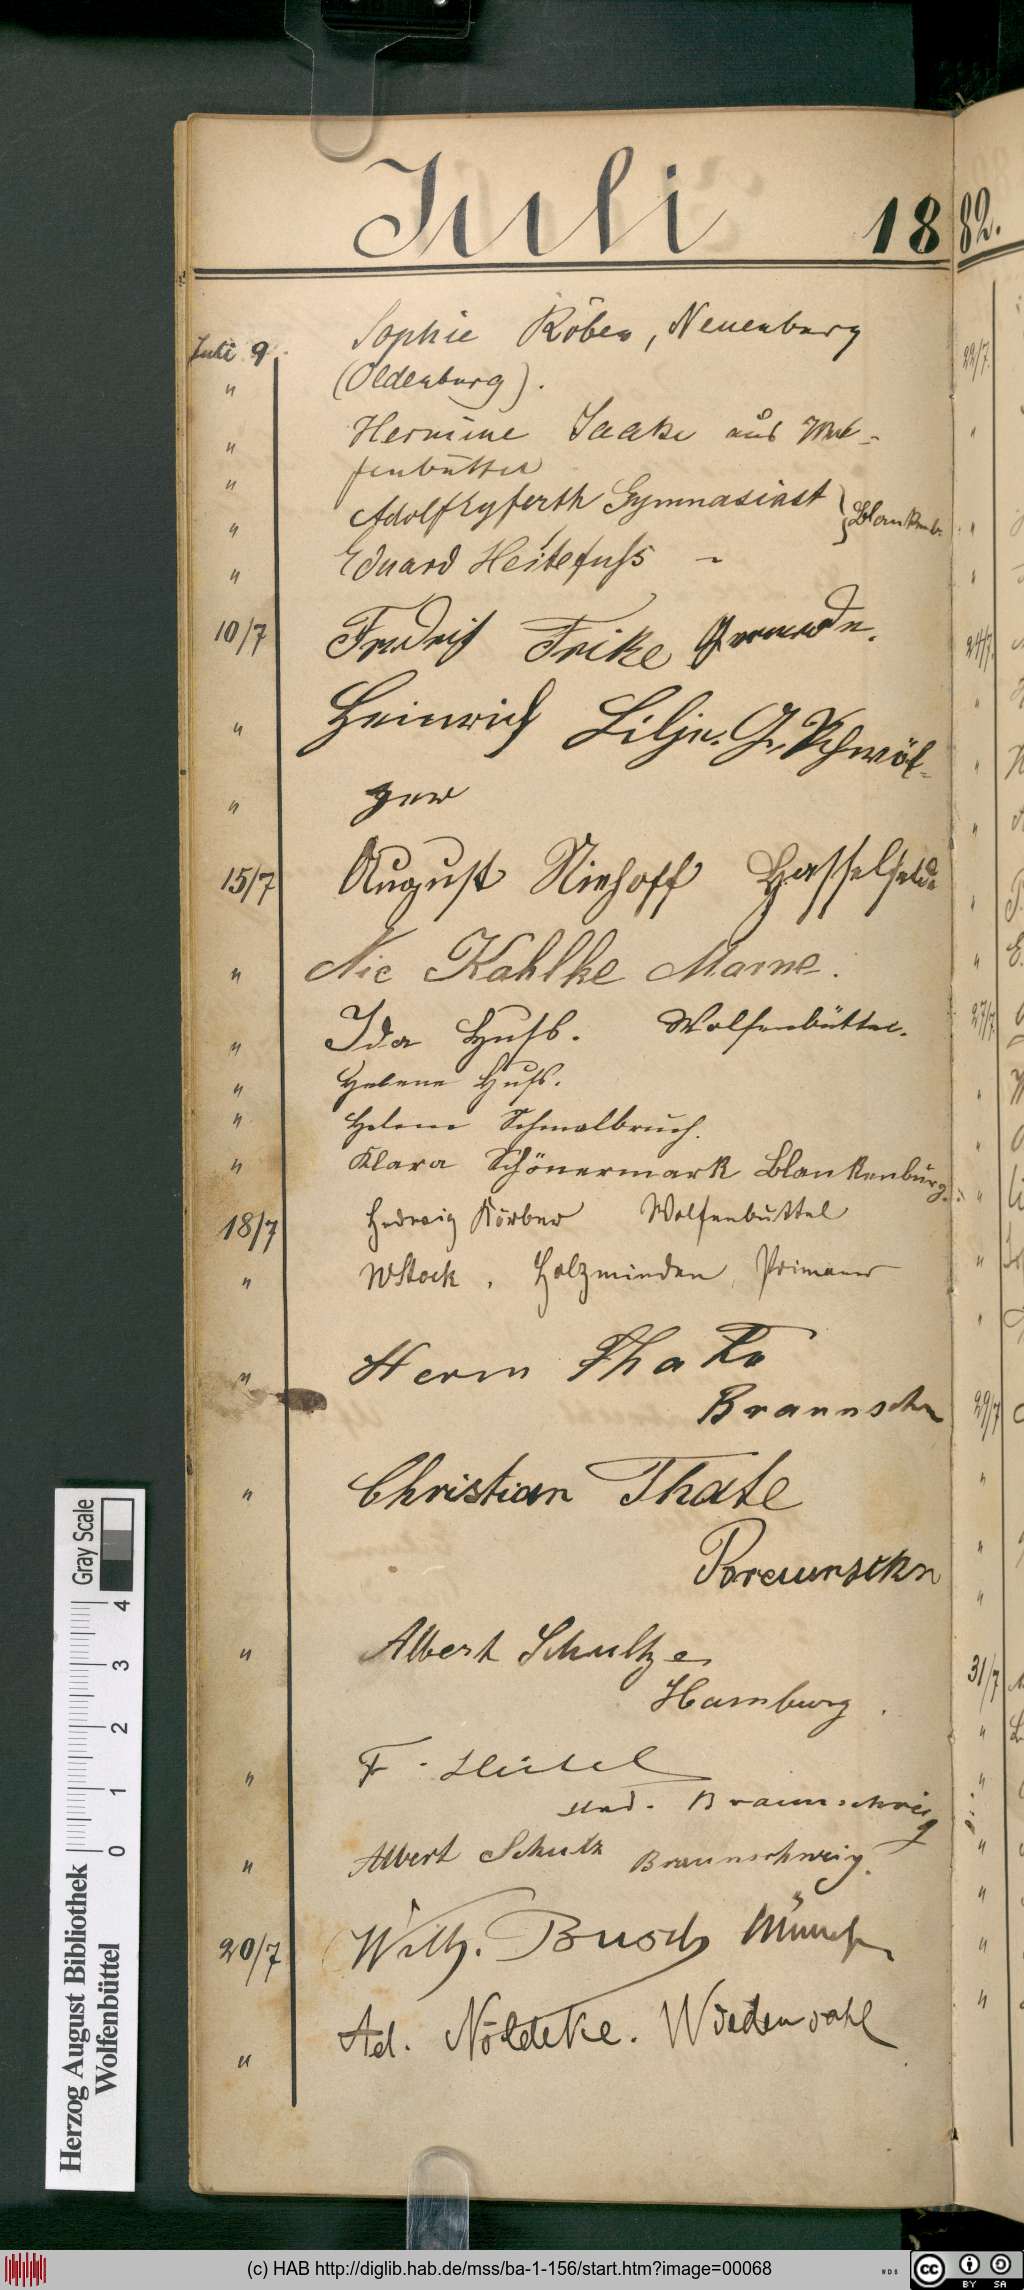 Juli 18
82.
Juli 9. Sophie Röben, Neuenburg
" (Oldenburg).
" Hermine Saake aus Wol-
" fenbüttel
" Adolf Eyferth Gymnasiast } Blankenb.
" Eduard Heitefuss "
10/7 Fredrich Frike
" Heinrich Lilje. Gr. Schwül-
" per
15/7 August Niehoff Hasselfelde
" Nic Kahlke Marne.
" Ida Huss. Wolfenbüttel.
" Helene Huss.
" Helene Schmalbruch.
" Klara Schönermark Blankenburg.
18/7 Hedwig Körber Wolfenbüttel
" WStock, Holzminden, Primaner
" Herm Thate
Braunschw
" Christian Thate
Braunschw
" Albert Schultze
Hamburg.
" F.
stud. Braunschweig
" Albert Schulz Braunschweig.
20/7 Wilh. Busch München
" Ad. Nöldeke. Wiedensahl
22/7.
24/7.
27/7
29/7
31/7
Gray Scale
0 1 2 3 4
Herzog August Bibliothek
Wolfenbüttel
(c) HAB http://diglib.hab.de/mss/ba-1-156/start.htm?image=00068
WDB
cc BY SA